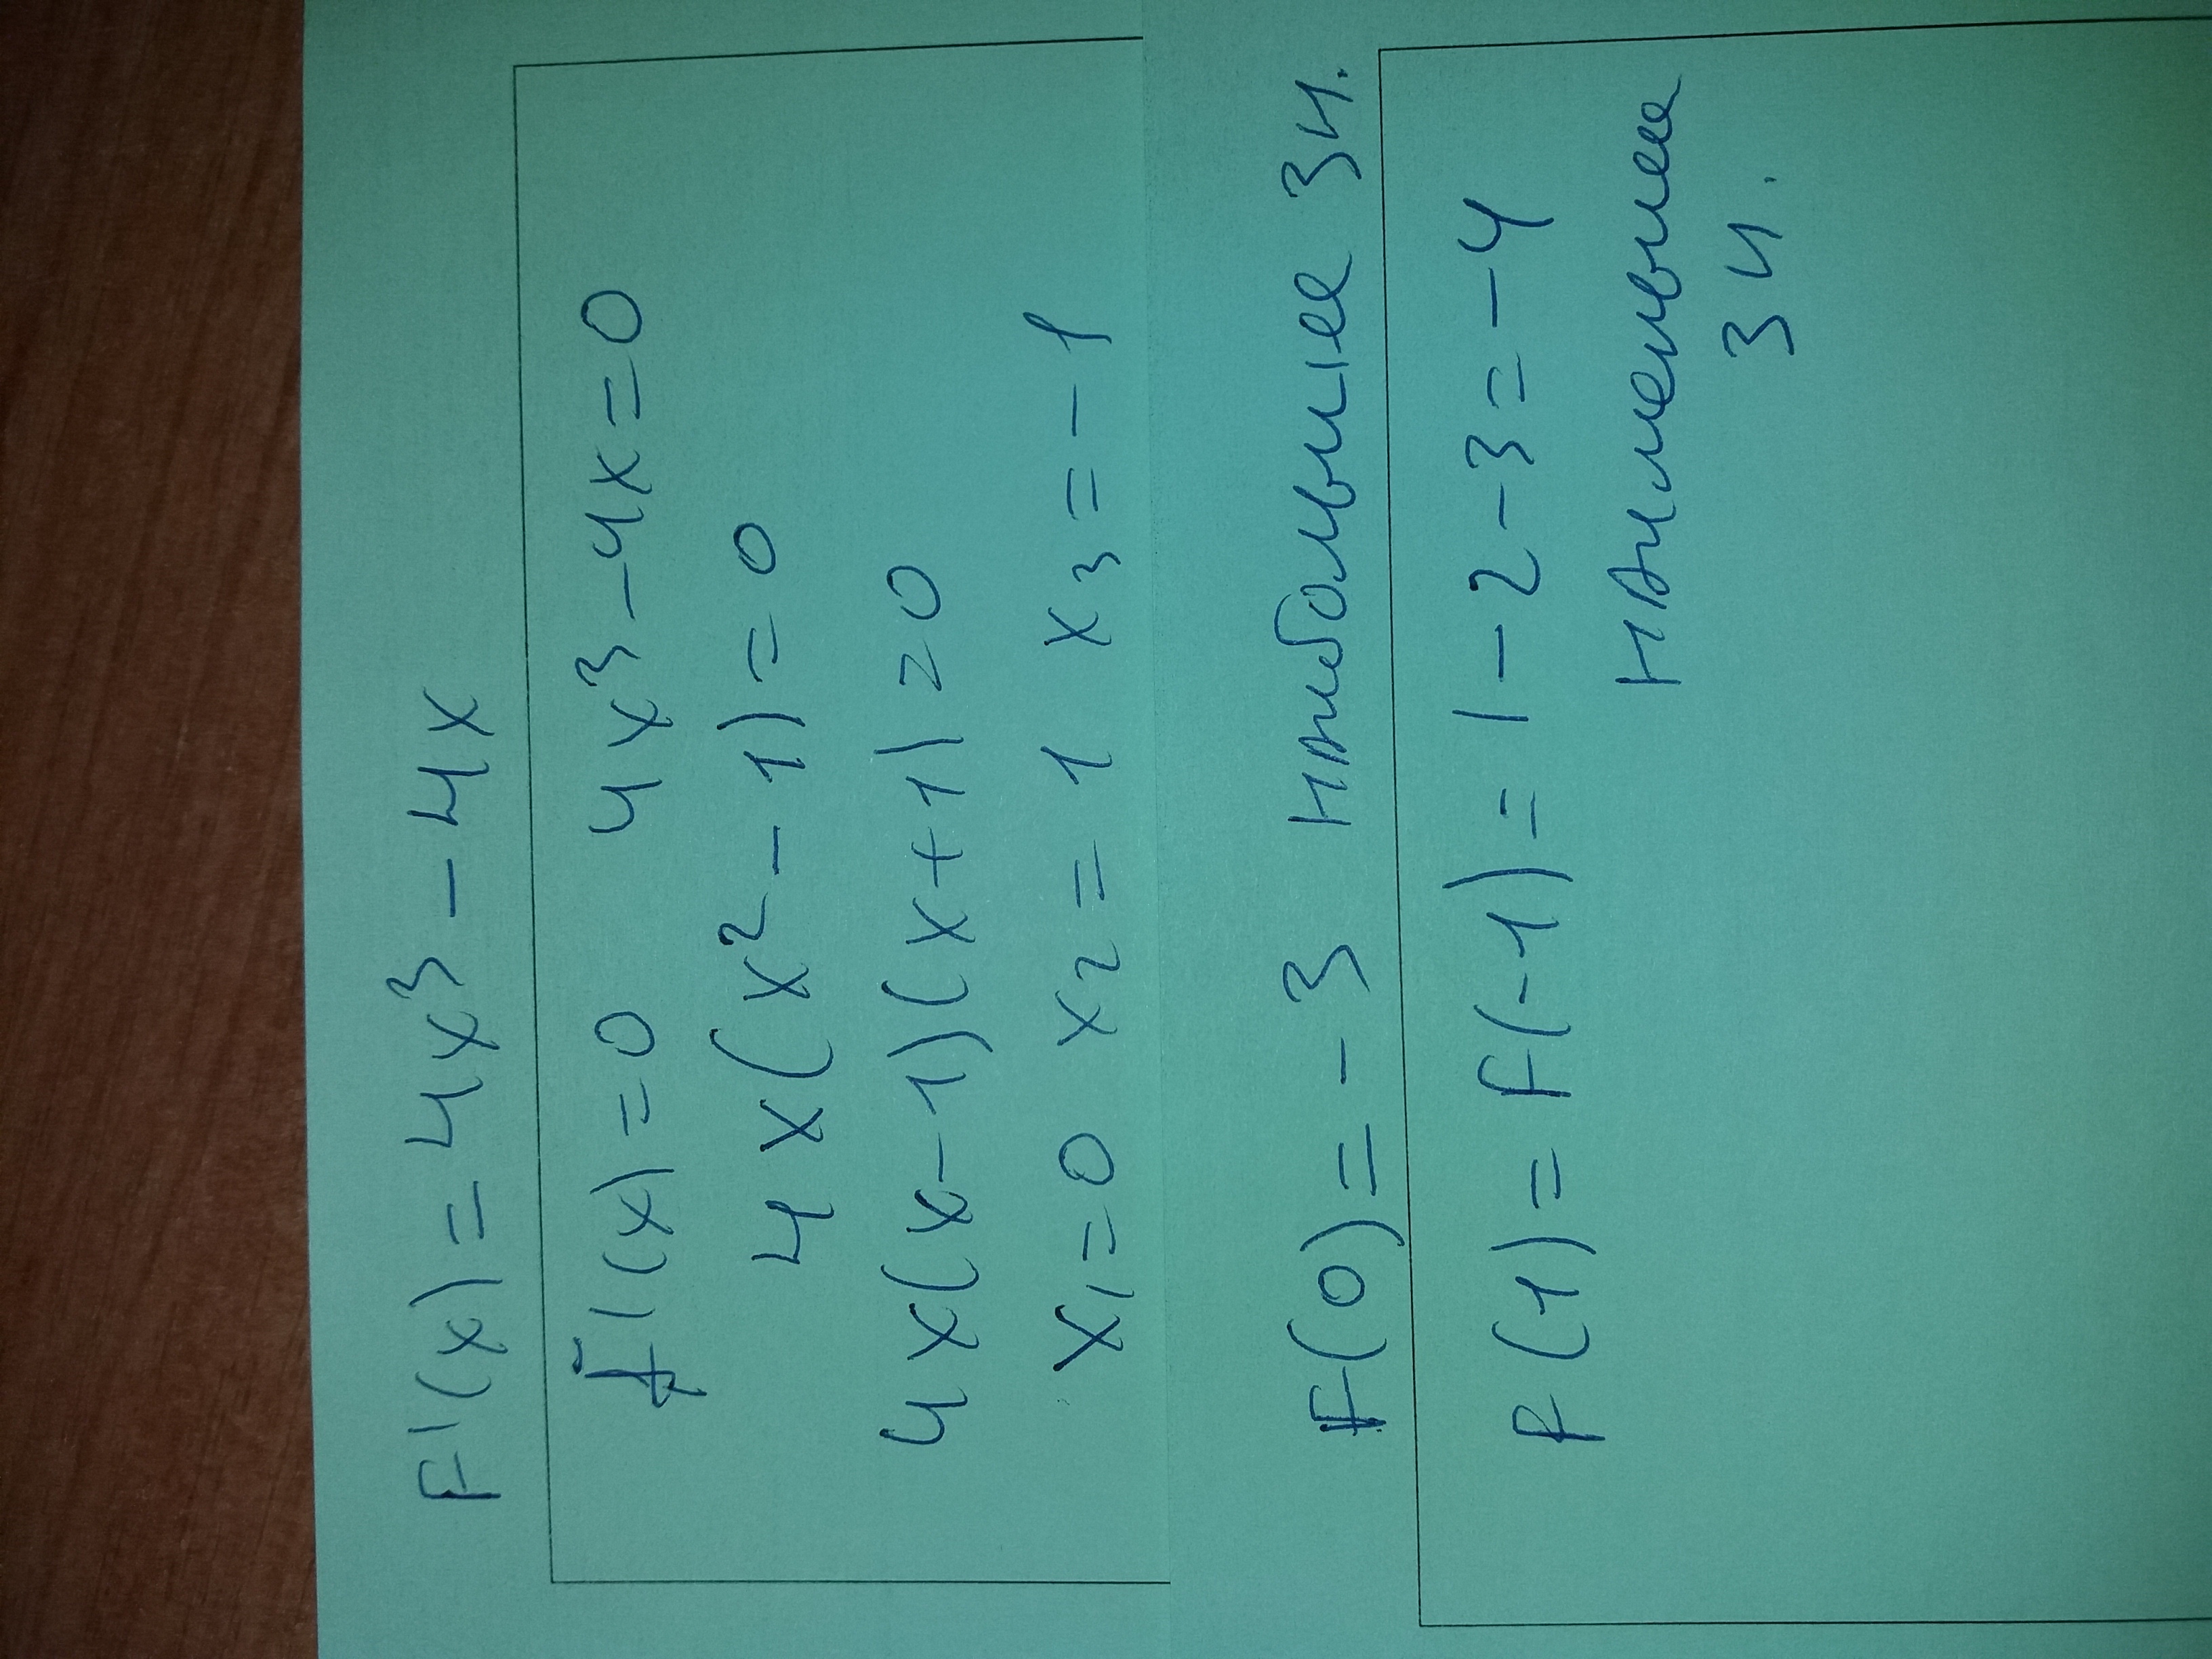 F'(x) = 4x³ - 4x
f'(x) = 0 4x³ - 4x = 0
4x(x² - 1) = 0
4x(x-1)(x+1) = 0
x₁ = 0 x₂ = 1 x₃ = -1
F(0) = -3 наибольшее зн.
F(1) = F(-1) = 1 - 2 - 3 = -4
наименьшее
зн.